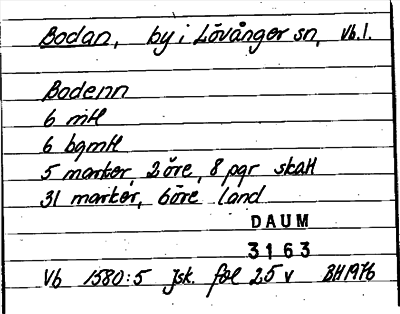 Bodan, by i Lövånger sn, Vb.l.
Bodenn
6 mtl
6 bgmtl
5 marker, 2 öre, 8 pgr skatt
31 marker, 6 öre land
DAUM
3163
Vb 1580:5 Jsk. fol 25 v BH 1976